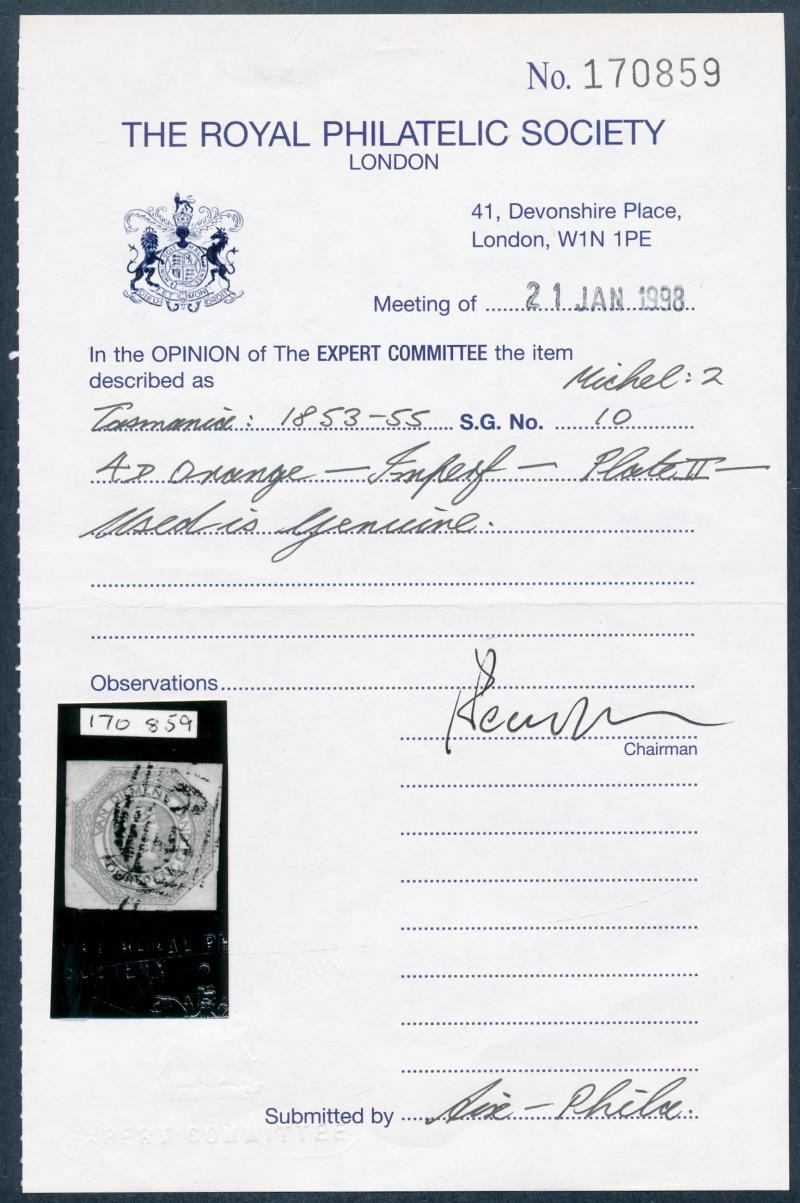 No. 170859
THE ROYAL PHILATELIC SOCIETY
LONDON
41, Devonshire Place,
London, W1N 1PE
Meeting of 21 JAN 1998
In the OPINION of The EXPERT COMMITTEE the item
described as
Michel: 2
Tasmania: 1853-55 S.G. No. 10
4D Orange — Imperf — Plate II —
Used is Genuine.
Observations
Chairman
170 859
VAN DIEMENS LAND
FOUR PENCE
Submitted by Aix - Phila.
EXPERT COMMITTEE